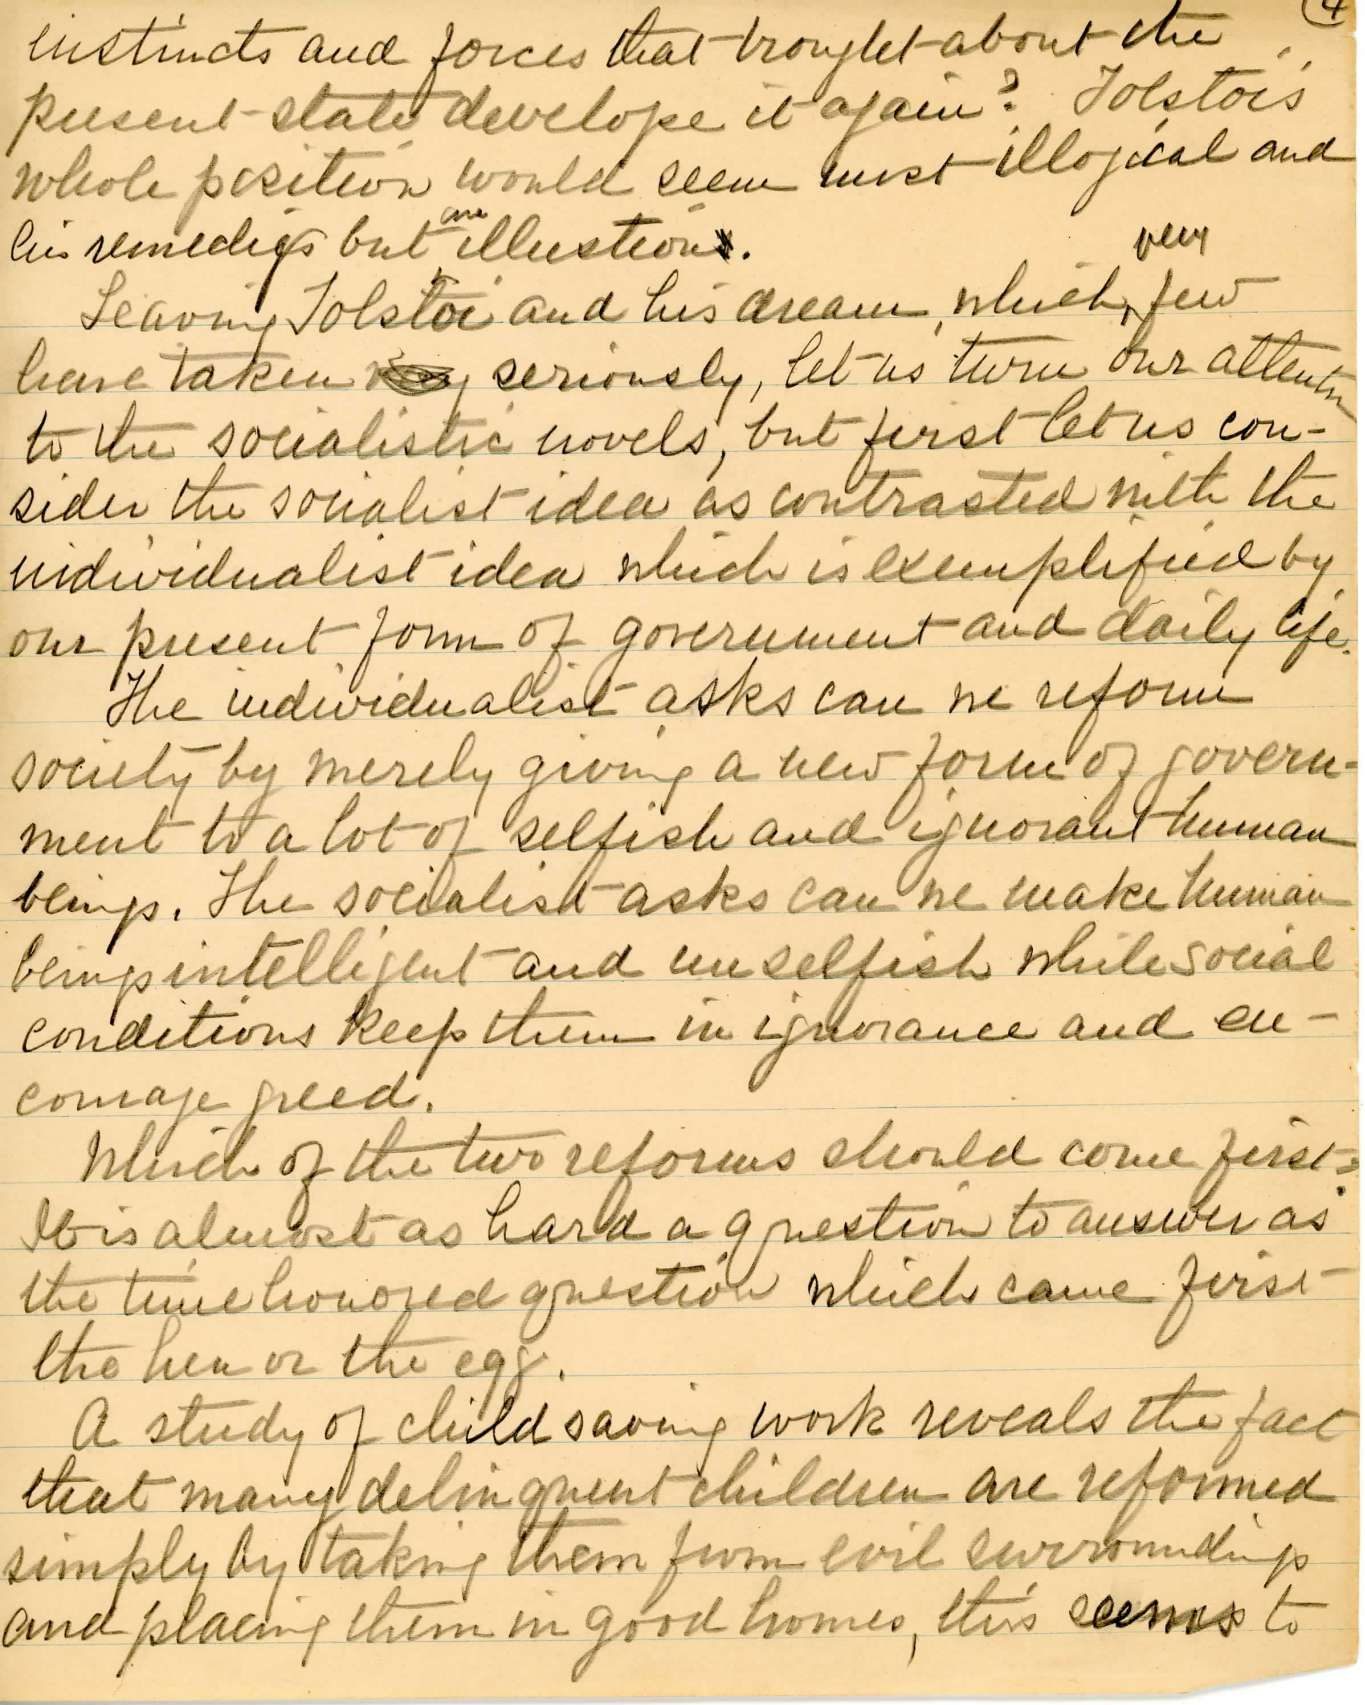 4
instincts and forces that brought about the
present state develope it again? Tolstoi's
whole position would seem most illogical and
his remedies but an illusion.
Leaving Tolstoi and his dream, which very few
have taken seriously, let us turn our attentn
to the socialistic novels, but first let us con-
sider the socialist idea as contrasted with the
individualist idea which is exemplified by
our present form of government and daily life.
The individualist asks can we reform
society by merely giving a new form of govern-
ment to a lot of selfish and ignorant human
beings. The socialist asks can we make human
beings intelligent and unselfish while social
conditions keep them in ignorance and en-
courage greed.
Which of the two reforms should come first?
It is almost as hard a question to answer as
the time honored question which came first
the hen or the egg.
A study of child saving work reveals the fact
that many delinquent children are reformed
simply by taking them from evil surroundings
and placing them in good homes, this seems to